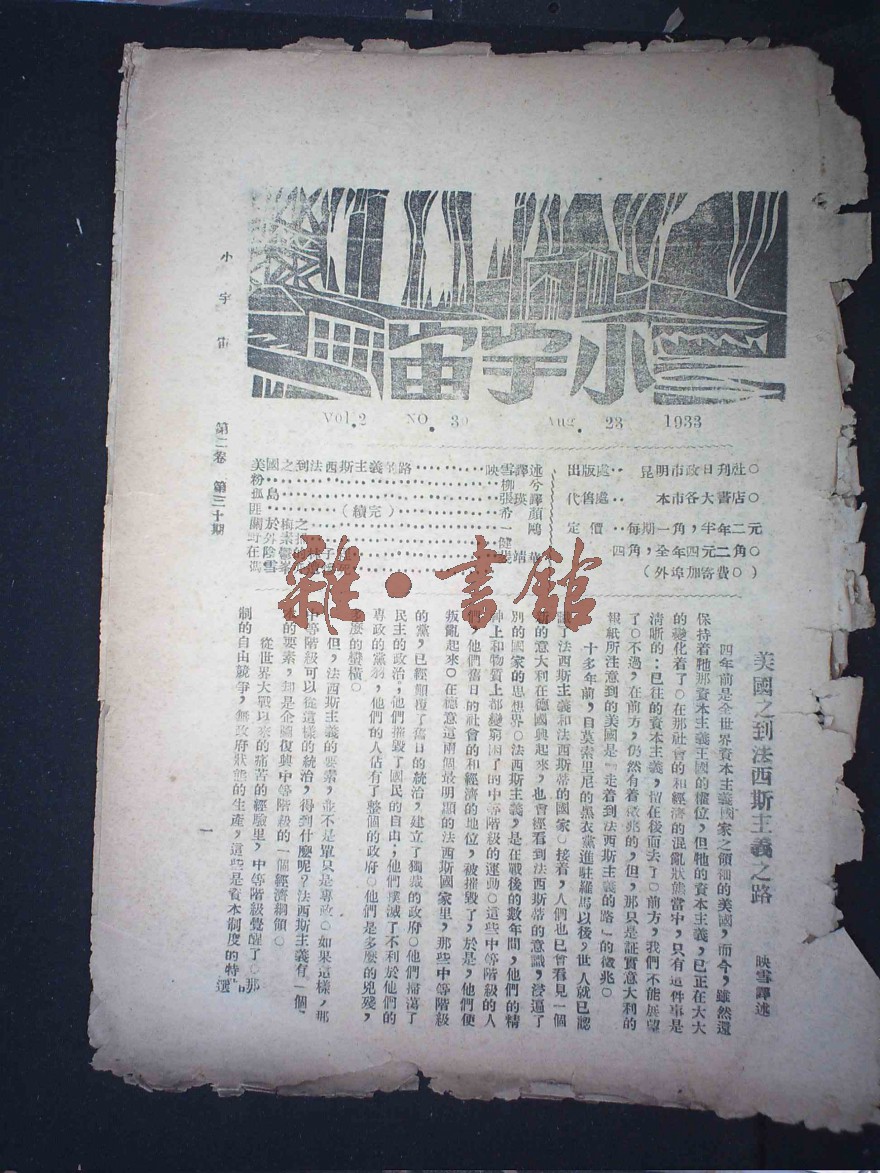 小宇宙
Vol.2 NO. 30 Aug. 23 1933
出版處‥昆明市政日刊社。
代售處‥本市各大書店。
定價‥每期一角，半年二元
四角，全年四元二角。
（外埠加寄費。）
美國之到法西斯主義的路‥‥‥映雪譯述
粉‥‥‥柳兮
孤島‥‥‥張瑛譯
匪（續完）‥‥‥希顏
關於梅之‥‥‥一鷗
外素‥‥‥健
在陰鬱‥‥‥靖華
小宇宙
第二卷 第三十期
美國之到法西斯主義之路 映雪譯述
四年前是全世界資本主義國家之領袖的美國，而今，雖然還
保持着牠那資本主義王國的權位，但牠的資本主義，已正在大大
的變化着了。在那社會的和經濟的混亂狀態當中，只有這件事是
清晰的：已往的資本主義，留在後面去了。前方，我們不能展望
了。不過，在前方，仍然有着徵兆的，但，那只是証實意大利的
報紙所注意到的美國是「走着到法西斯主義的路」的徵兆。
十多年前，自莫索里尼的黑衣黨進駐羅馬以後，世人就已認
識了法西斯主義和法西斯蒂的國家。接着，人們也已曾看見一個
新的意大利在德國興起來，也曾經看到法西斯蒂的意識，浸遍了
別的國家的思想界。法西斯主義，是在戰後的數年間，他們的精
神上和物質上都變窮困了的中等階級的運動。這些中等階級的人
們，他們舊日的社會的和經濟的地位，被摧毀了，於是，他們便
叛亂起來。在德意這兩個最明顯的法西斯國家里，那些中等階級
的黨，已經顛覆了舊日的統治，建立了獨裁的政府。他們掃蕩了
民主的政治；他們摧毀了國民的自由；他們撲滅了不利於他們的
專政的黨羽，他們的人佔有了整個的政府。他們是多麼的兇殘，
多麼的蠻橫。
但，法西斯主義的要素，並不是單只是專政。如果這樣，那
中等階級可以從這樣的統治，得到什麼呢？法西斯主義有一個
的要素，却是企圖復興中等階級的一個經濟綱領。
從世界大戰以來的痛苦的經驗里，中等階級覺醒了。那
制的自由競爭，無政府狀態的生產，這些是資本制度的特
一
雜·書館